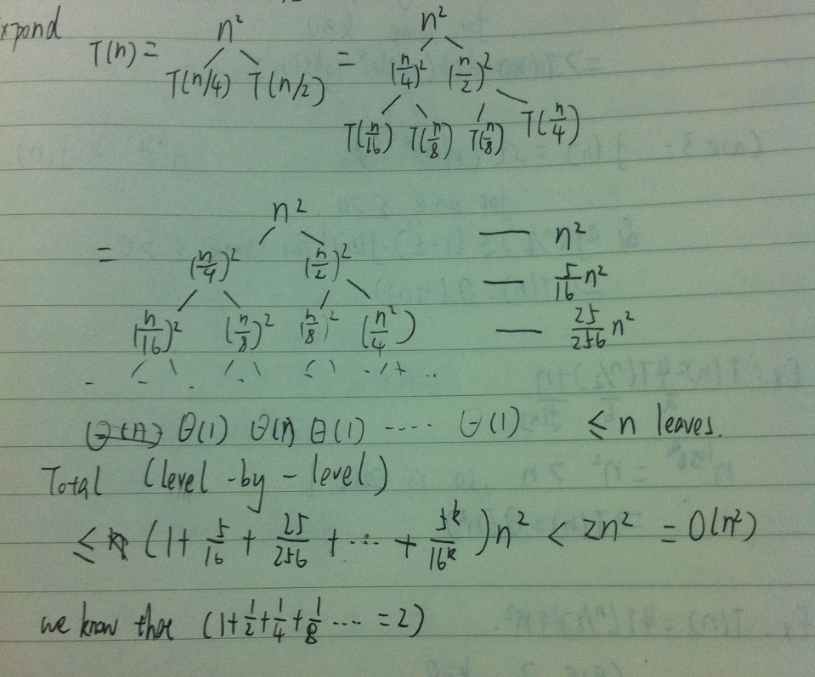 xpond
T(n) = n² = n²
T(n/4) T(n/2) (n/4)² (n/2)²
T(n/16) T(n/8) T(n/8) T(n/4)
= n² — n²
(n/4)² (n/2)² — 5/16 n²
(n/16)² (n/8)² (n/8)² (n²/4) — 25/256 n²
Θ(n) Θ(1) Θ(1) Θ(1) ---- Θ(1) ≤ n leaves.
Total (level-by-level)
≤ (1 + 5/16 + 25/256 + ··· + 5ᵏ/16ᵏ)n² < 2n² = O(n²)
we know that (1+1/2+1/4+1/8 ---- = 2)